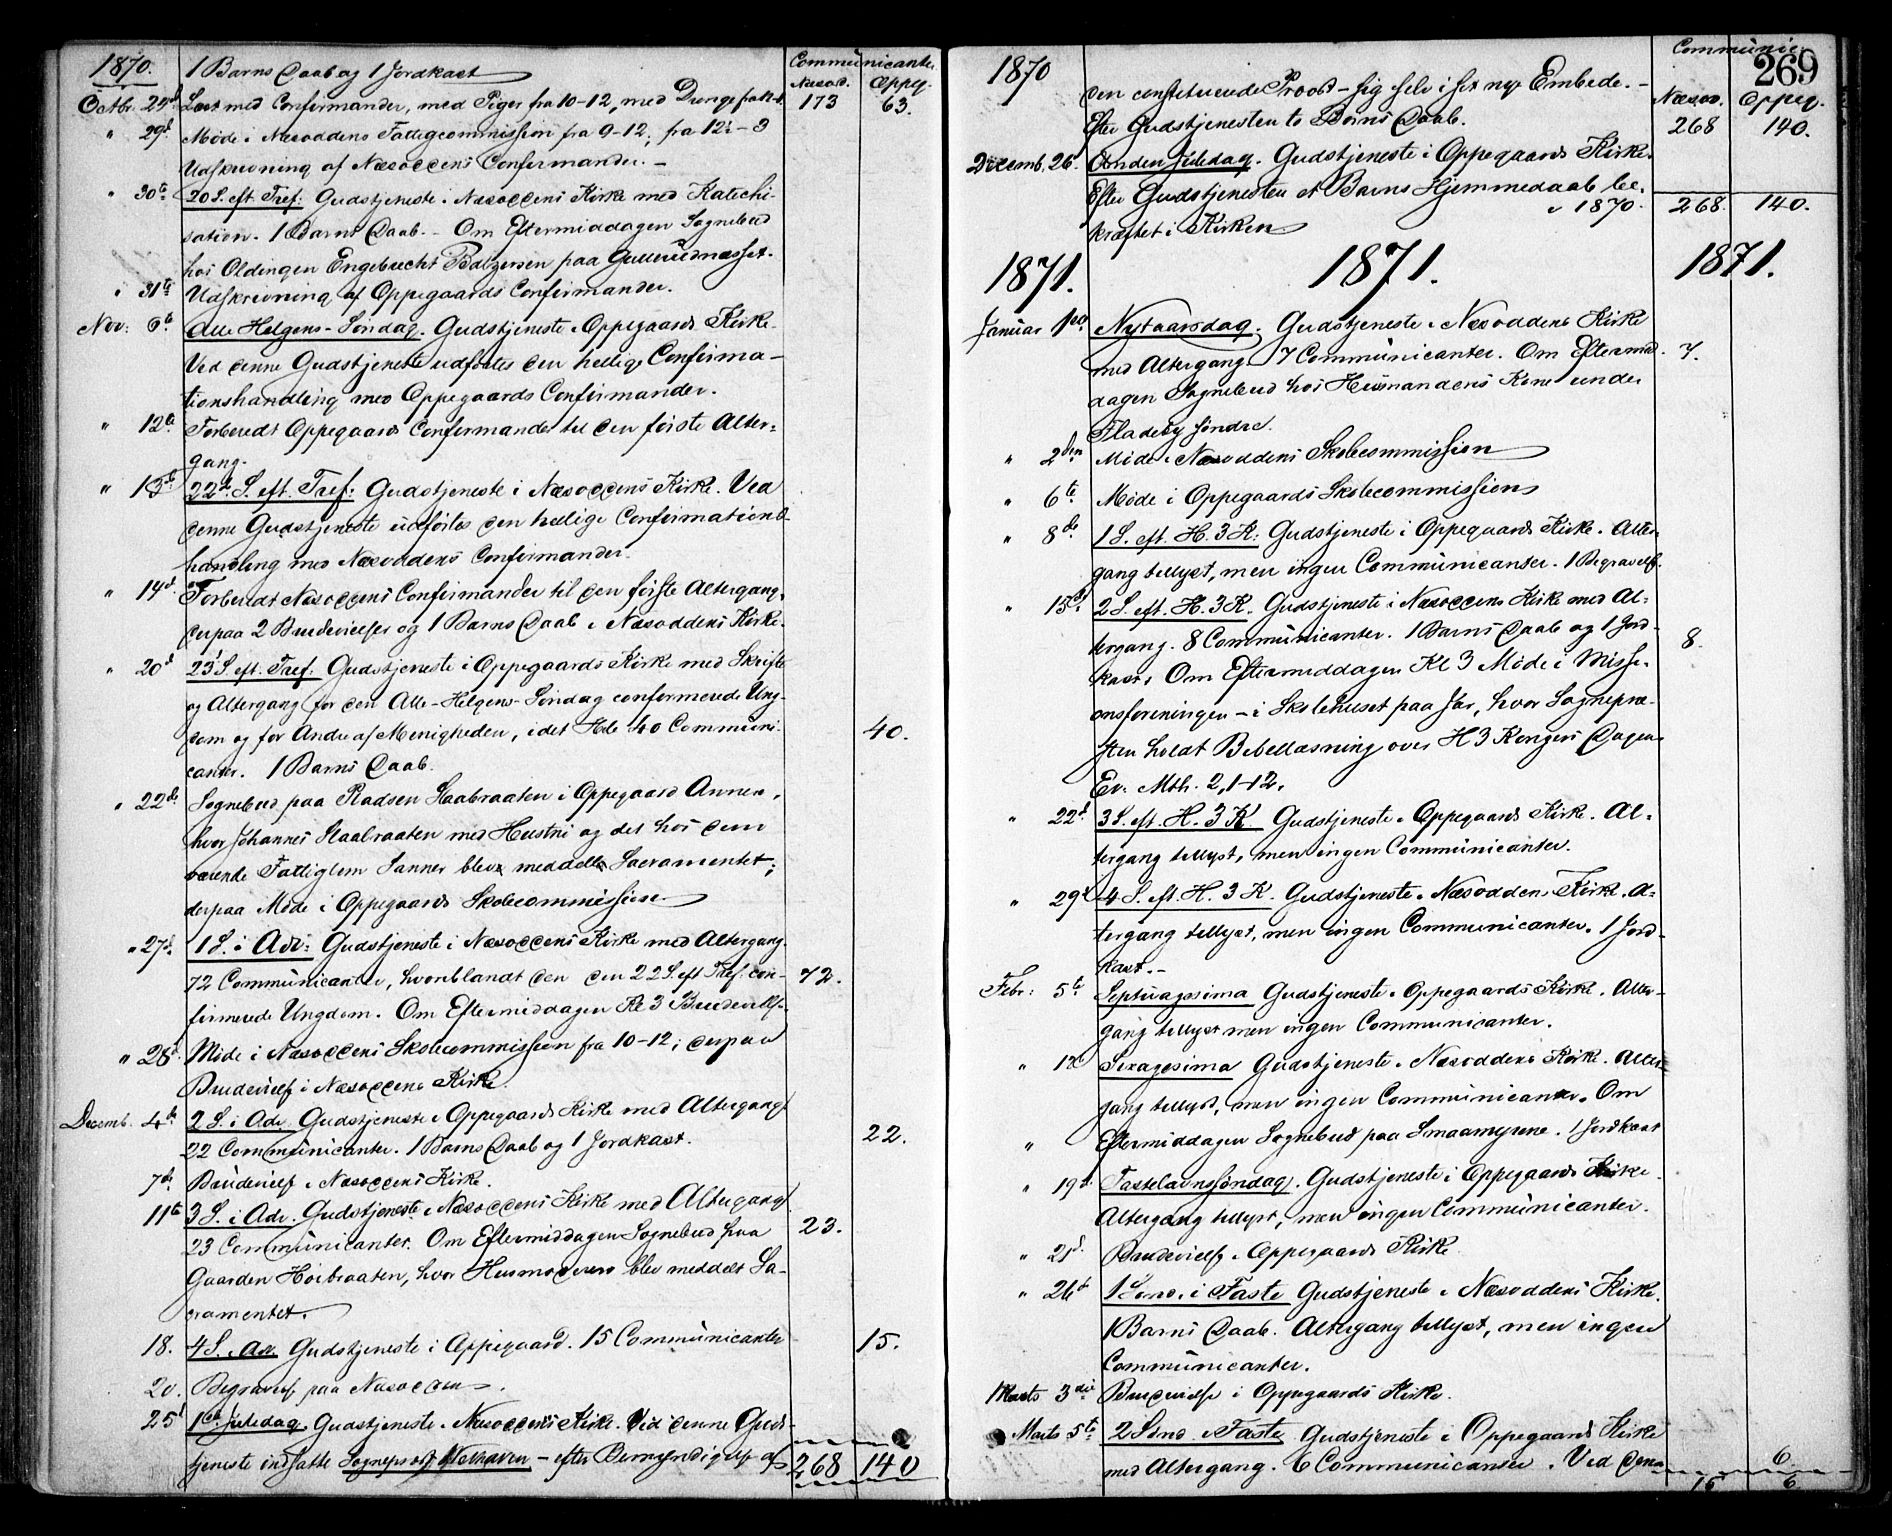 1870.
Communicanter
1 Barns Daab og 1 Jordkast
Næsod. Oppeg.
Octbr. 24d Læst med Confirmander, med Piger fra 10-12, med Drenge fra 173 63.
" 29d Møde i Næsoddens Fattigcommission fra 9-12; fra 12½-3
Udskrivning af Næsoddens Confirmander. -
" 30te 20 S. eft. Tref: Gudstjeneste i Næsoddens Kirke med Katechi-
sation. 1 Barns Daab. - Om Eftermiddagen Sognebud
hos Oldingen Engebrecht Baltzersen paa
" 31te Udskrivning af Oppegaards Confirmander.
Nov: 6te Alle Helgens-Søndag. Gudstjeneste i Oppegaards Kirke.
Ved denne Gudstjeneste udførtes den hellige Confirma-
tionshandling med Oppegaards Confirmander.
" 12te Forberedt Oppegaards Confirmander til den første Alter-
gang.
" 13de 22d S. eft. Tref: Gudstjeneste i Næsoddens Kirke. Ved
denne Gudstjeneste udførtes den hellige Confirmations-
handling med Næsoddens Confirmander.
" 14d Forberedt Næsoddens Confirmander til den første Altergang,
derpaa 2 Brudevielser og 1 Barns Daab i Næsoddens Kirke.
" 20d 23 S. eft. Tref: Gudstjeneste i Oppegaards Kirke med Skrifte
og Altergang for den Alle-Helgens-Søndag confirmerede Ung-
dom og for Andre af Menigheden, i det Hele 40 Communi- 40.
canter. 1 Barns Daab.
" 22de Sognebud paa Pladsen i Oppegaard Annex,
hvor Johannes med Hustru og det hos dem
værende Fattiglem blev meddelt Sacramentet;
derpaa Møde i Oppegaards Skolecommission
" 27d 1 S. i Adv: Gudstjeneste i Næsoddens Kirke med Altergang.
72 Communicanter, hvoriblandt den den 22 S. eft Tref. con- 72.
firmerede Ungdom. Om Eftermiddagen Kl 3 Brudevielse.
" 28d Møde i Næsoddens Skolecommission fra 10-12; derpaa
Brudevielse i Næsoddens Kirke.
Decemb. 4de 2 S. i Adv. Gudstjeneste i Oppegaards Kirke med Altergang.
22 Communicanter. 1 Barns Daab og 1 Jordkast. 22.
7de Brudevielse i Næsoddens Kirke.
11te 3 S. i Adv. Gudstjeneste i Næsoddens Kirke med Altergang.
23 Communicanter. Om Eftermiddagen Sognebud paa 23.
Gaarden Hoibraaten, hvor blev meddelt Sa-
cramentet.
18. 4 S. Adv. Gudstjeneste i Oppegaard. 15 Communicanter 15.
20. Begravels paa Næsodden.
25d 1ste Juledag. Gudstjeneste i Næsoddens Kirke. Ved denne Guds-
tjeneste indsatte Sogneprest Welhaven - efter Bemyndigelse af 268 140
1870
Communic.
269
den constituerede Provst - sig selv i sit nye Embede. - Næsod. Oppeg.
Efter Gudstjenesten to Børns Daab. 268 140.
Decemb. 26. Anden Juledag. Gudstjeneste i Oppegaards Kirke.
Efter Gudstjenesten et Barns Hjemmedaab be-
i 1870. 268. 140.
kræftet i Kirken
1871. 1871. 1871.
Januar 1ste Nytaarsdag. Gudstjeneste i Næsoddens Kirke
med Altergang. 7 Communicanter. Om Eftermid- 7.
dagen Sognebud hos Husmandens Kone under
Fladeby søndre.
" 2den Møde i Næsoddens Skolecommission
" 6te Møde i Oppegaards Skolecommission
" 8de 1 S. eft. H. 3 K: Gudstjeneste i Oppegaards Kirke. Alter-
gang tillyst, men ingen Communicanter. 1 Begravels.
" 15d 2 S. eft. H. 3 K. Gudstjeneste i Næsoddens Kirke med Al-
tergang. 8 Communicanter. 1 Barns Daab og 1 Jord- 8.
kast. Om Eftermiddagen Kl 3 Møde i Missi-
onsforeningen - i Skolehuset paa Jær, hvor Sognepræ-
sten holdt Bibellæsning over H 3 Kongers Dagens
Ev. Mth. 2, 1-12.
" 22d 3 S. eft. H. 3 K Gudstjeneste i Oppegaards Kirke. Al-
tergang tillyst, men ingen Communicanter.
" 29d 4 S. eft. H. 3 K. Gudstjeneste i Næsoddens Kirke. Al-
tergang tillyst, men ingen Communicanter. 1 Jord-
kast. -
Febr: 5te Septuagesima Gudstjeneste i Oppegaards Kirke. Alter-
gang tillyst men ingen Communicanter.
" 12 Sexagesima Gudstjeneste i Næsoddens Kirke. Alter-
gang tillyst, men ingen Communicanter. Om
" Eftermiddagen Sognebud paa Smaamyrene. 1 Jordkast
" 19d Fastelavnssøndag. Gudstjeneste i Oppegaards Kirke.
Altergang tillyst, men ingen Communicanter.
" 21d Brudevielse i Oppegaards Kirke
" 26d 1 Sønd. i Faste Gudstjeneste i Næsoddens Kirke.
1 Barns Daab. Altergang tillyst, men ingen
Communicanter.
Marts 3die Brudevielse i Oppegaards Kirke.
Marts 5te 2 Sønd i Faste Gudstjeneste i Oppegaards Kirke
med Altergang. 6 Communicanter. Ved denne 6.
15 6